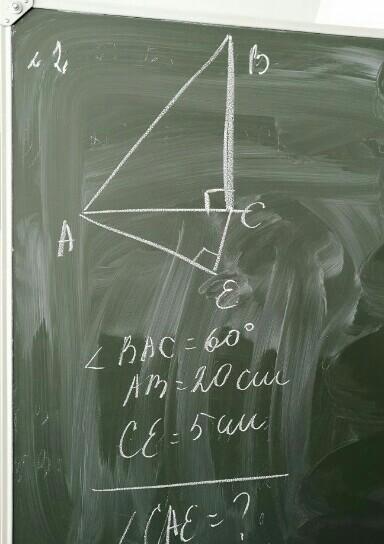 2.
B
A
C
E
∠BAC = 60°
AB = 20 см
CE = 5 см
∠CAE = ?